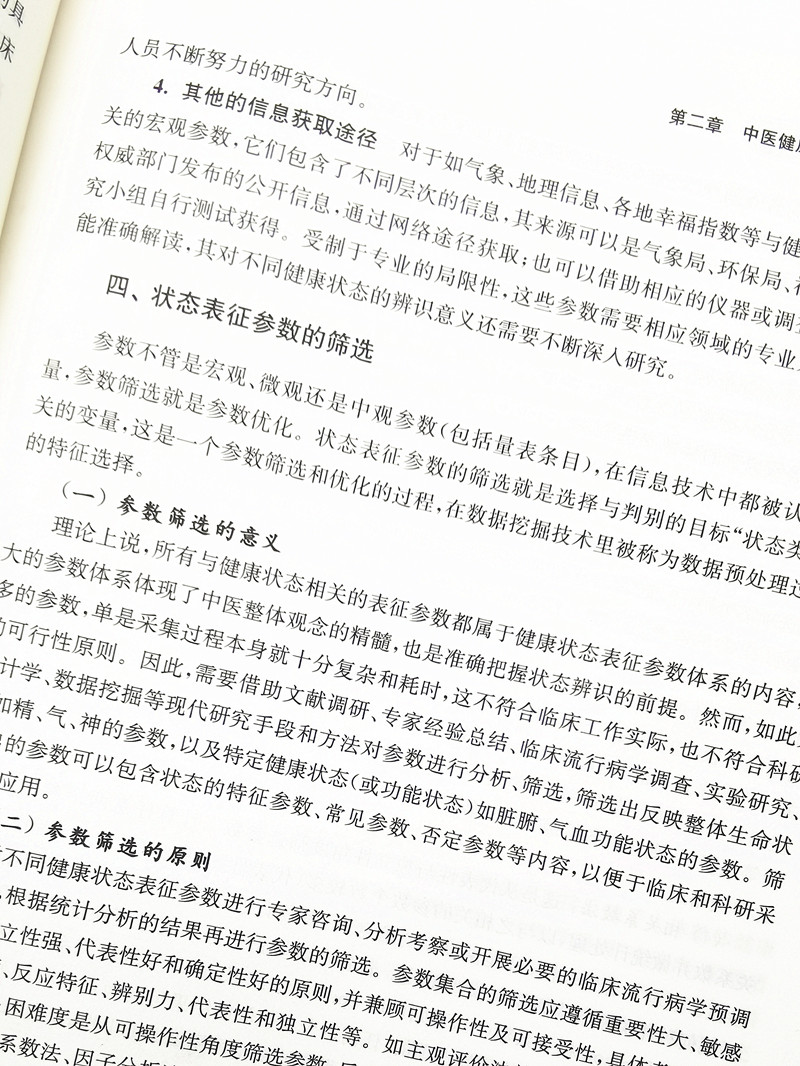 的具
床
第二章 中医健康
人员不断努力的研究方向。
4. 其他的信息获取途径 对于如气象、地理信息、各地幸福指数等与健
关的宏观参数，它们包含了不同层次的信息，其来源可以是气象局、环保局、
权威部门发布的公开信息，通过网络途径获取；也可以借助相应的仪器或调
究小组自行测试获得。受制于专业的局限性，这些参数需要相应领域的专业
能准确解读，其对不同健康状态的辨识意义还需要不断深入研究。
四、状态表征参数的筛选
参数不管是宏观、微观还是中观参数（包括量表条目），在信息技术中都被认
量，参数筛选就是参数优化。状态表征参数的筛选就是选择与判别的目标“状态类
关的变量，这是一个参数筛选和优化的过程，在数据挖掘技术里被称为数据预处理
的特征选择。
（一）参数筛选的意义
理论上说，所有与健康状态相关的表征参数都属于健康状态表征参数体系的内容，
大的参数体系体现了中医整体观念的精髓，也是准确把握状态辨识的前提。然而，如此
多的参数，单是采集过程本身就十分复杂和耗时，这不符合临床工作实际，也不符合科研
的可行性原则。因此，需要借助文献调研、专家经验总结、临床流行病学调查、实验研究、
计学、数据挖掘等现代研究手段和方法对参数进行分析、筛选，筛选出反映整体生命状
如精、气、神的参数，以及特定健康状态（或功能状态）如脏腑、气血功能状态的参数。筛
的参数可以包含状态的特征参数、常见参数、否定参数等内容，以便于临床和科研采
应用。
二）参数筛选的原则
不同健康状态表征参数进行专家咨询、分析考察或开展必要的临床流行病学预调
，根据统计分析的结果再进行参数的筛选。参数集合的筛选应遵循重要性大、敏感
立性强、代表性好和确定性好的原则，并兼顾可操作性及可接受性，具体
、反应特征、辨别力、代表性和独立性等。如主观评价
困难度是从可操作性角度筛选参数
系数法、因子分析